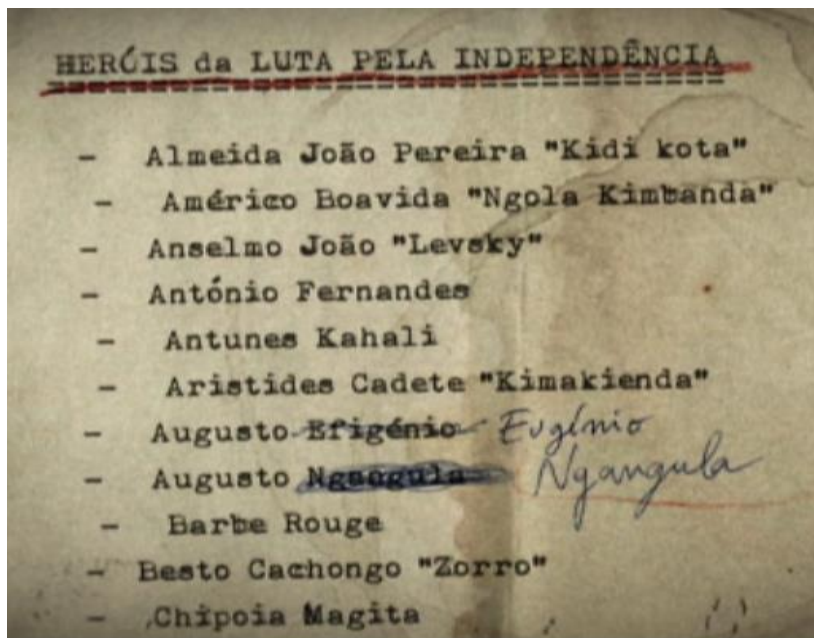 HERÓIS da LUTA PELA INDEPENDÊNCIA
- Almeida João Pereira "Kidi kota"
- Américo Boavida "Ngola Kimbanda"
- Anselmo João "Levsky"
- António Fernandes
- Antunes Kahali
- Aristides Cadete "Kimakienda"
- Augusto Efigénio Eugénio
- Augusto Ngangula
- Barbe Rouge
- Besto Cachongo "Zorro"
- Chipoia Magita